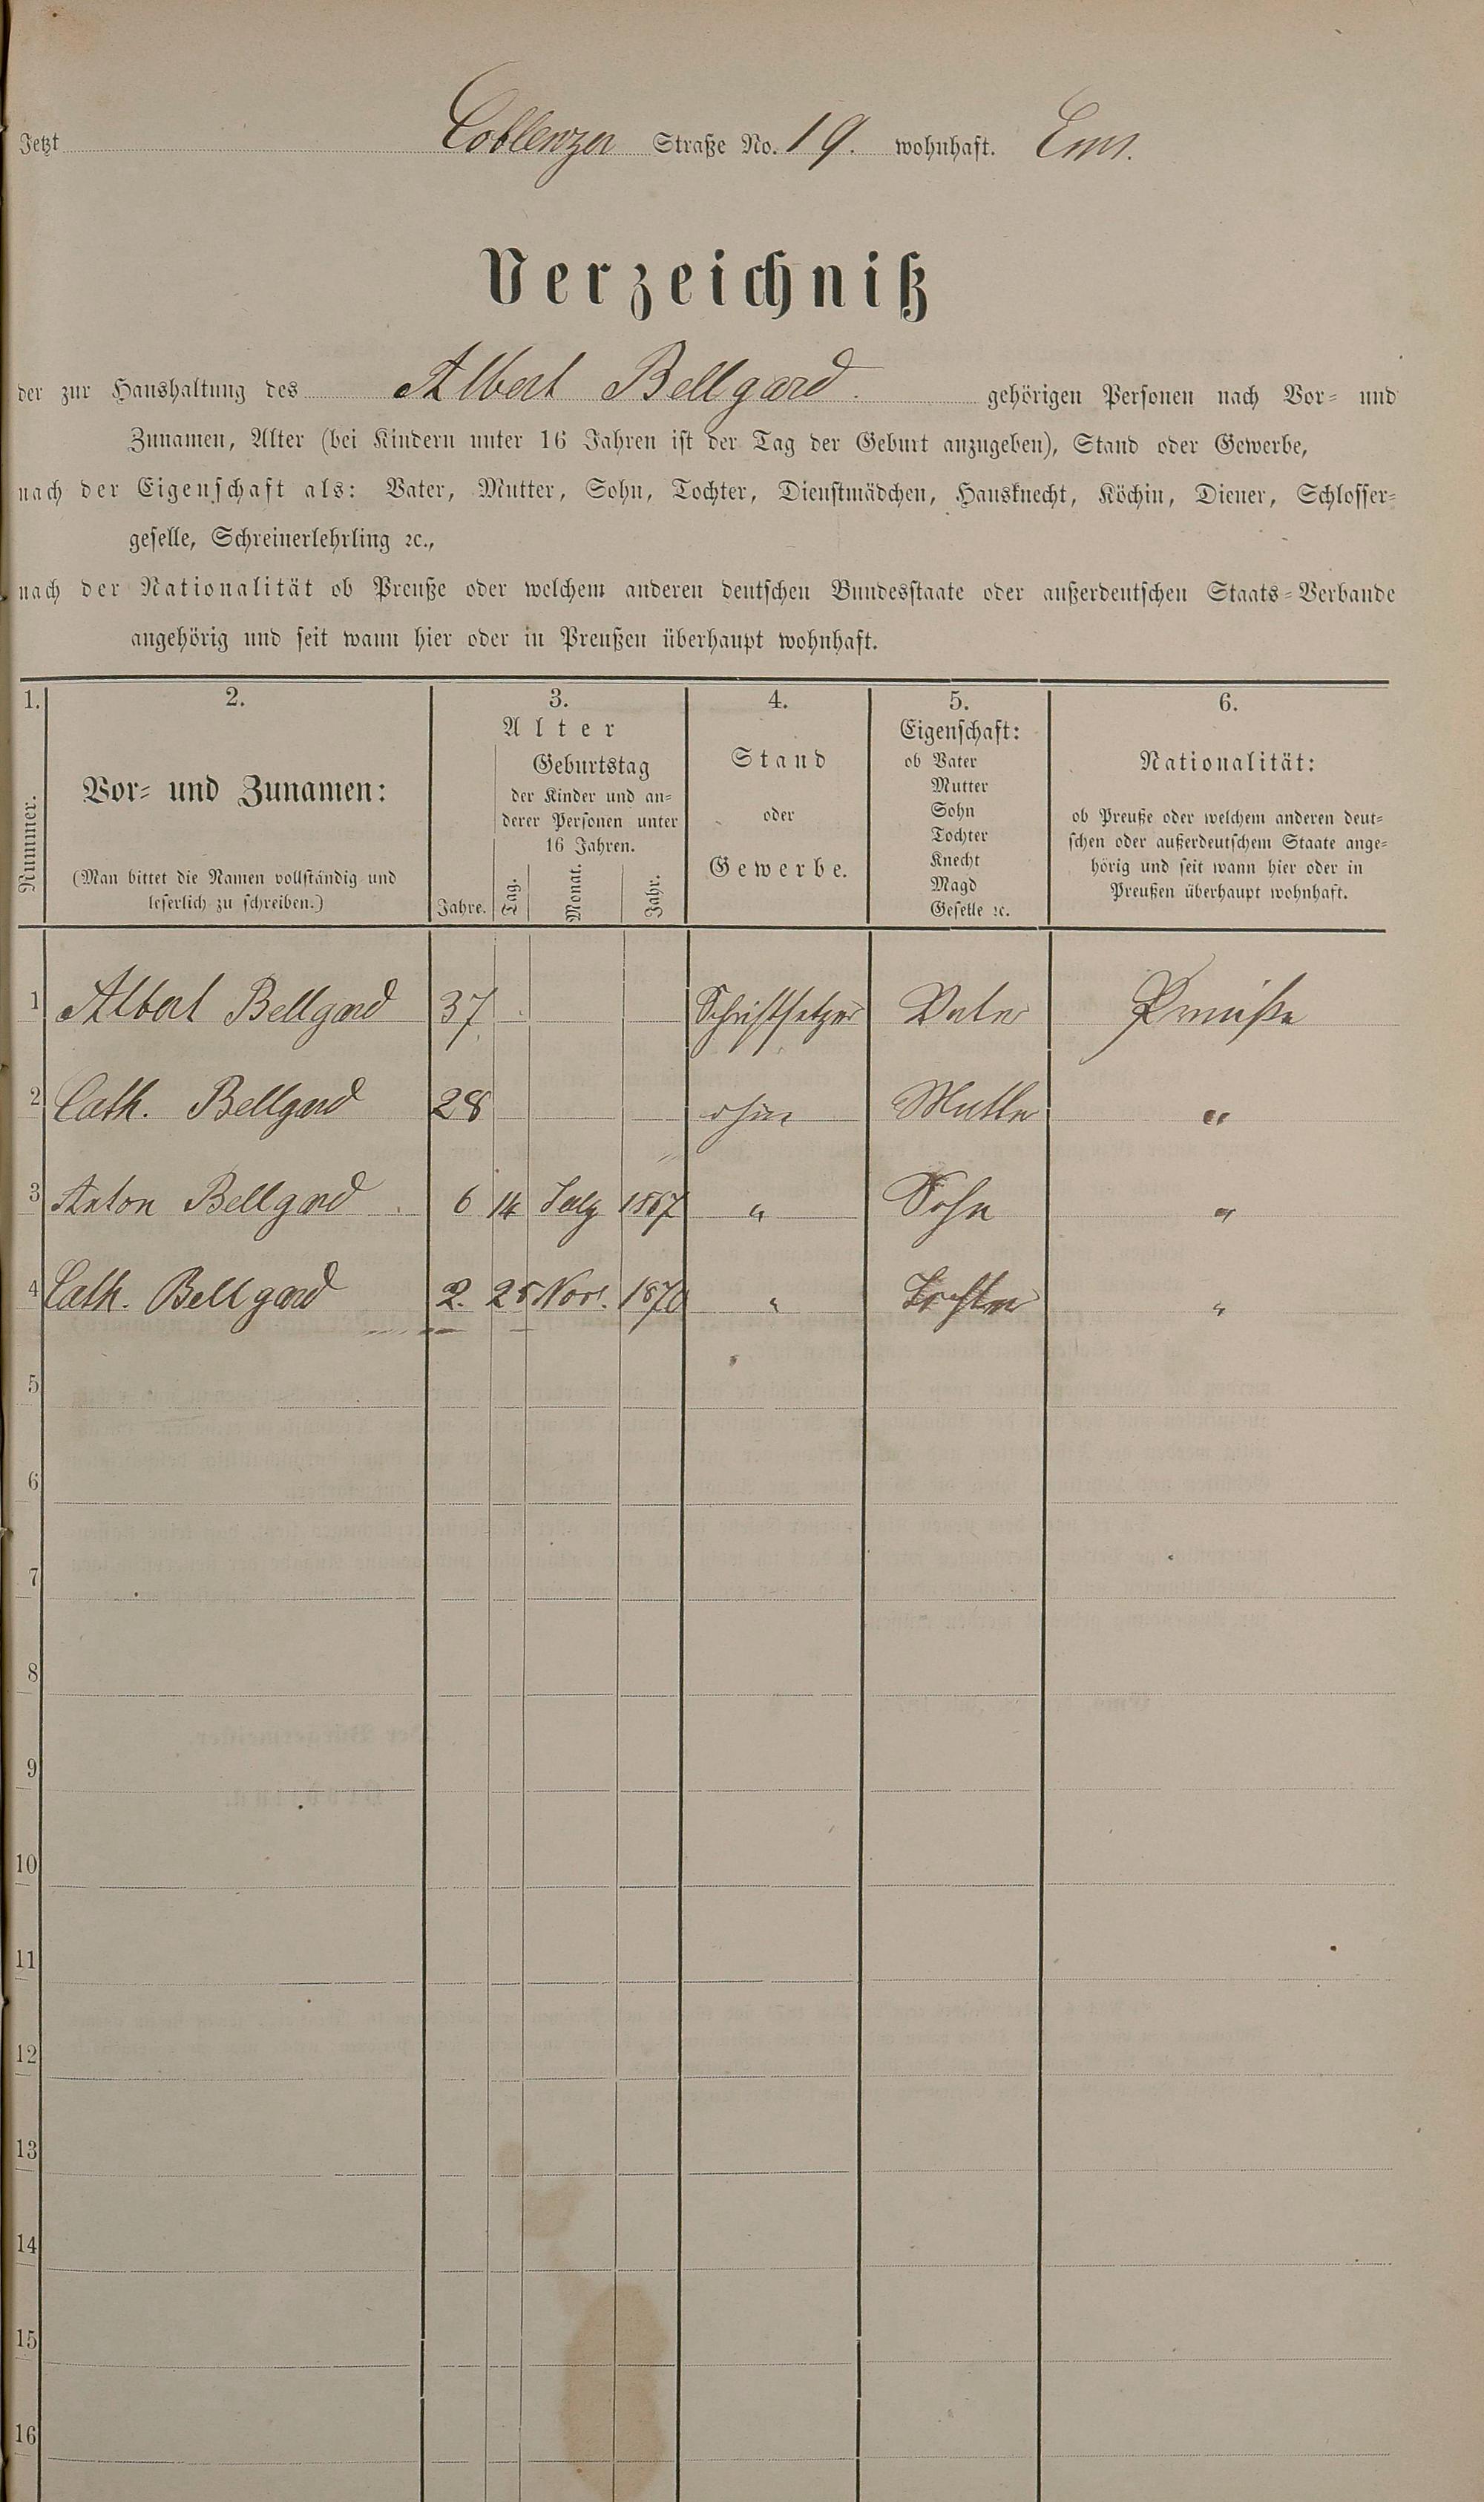 Jetzt Coblenzer Straße No. 19. wohnhaft. Ems.
Verzeichniß
der zur Haushaltung des Albert Bellgard. gehörigen Personen nach Vor- und
Zunamen, Alter (bei Kindern unter 16 Jahren ist der Tag der Geburt anzugeben), Stand oder Gewerbe,
nach der Eigenschaft als: Vater, Mutter, Sohn, Tochter, Dienstmädchen, Hausknecht, Köchin, Diener, Schlosser-
geselle, Schreinerlehrling ꝛc.,
nach der Nationalität ob Preuße oder welchem anderen deutschen Bundesstaate oder außerdeutschen Staats-Verbande
angehörig und seit wann hier oder in Preußen überhaupt wohnhaft.
1. 2. 3. 4. 5. 6.
Nummer.
Vor- und Zunamen:
(Man bittet die Namen vollständig und
leserlich zu schreiben.)
Alter
Jahre.
Geburtstag
der Kinder und an-
derer Personen unter
16 Jahren.
Tag. Monat. Jahr.
Stand
oder
Gewerbe.
Eigenschaft:
ob Vater
Mutter
Sohn
Tochter
Knecht
Magd
Geselle ꝛc.
Nationalität:
ob Preuße oder welchem anderen deut-
schen oder außerdeutschem Staate ange-
hörig und seit wann hier oder in
Preußen überhaupt wohnhaft.
1 Albert Bellgard 37 Schriftsetzer Vater Preuße
2 Cath. Bellgard 28 ohne Mutter "
3 Anton Bellgard 6 14 July 1867 " Sohn "
4 Cath. Bellgard 2. 25 Nov. 1870 " Tochter "
5
6
7
8
9
10
11
12
13
14
15
16